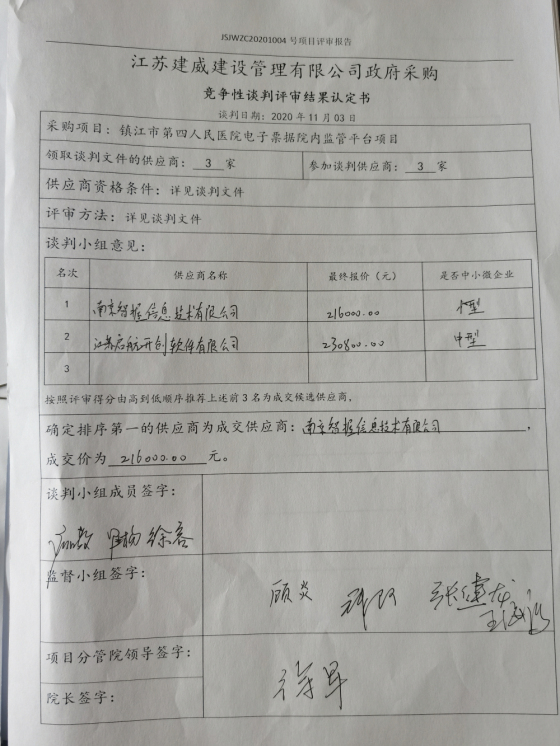 JSJWZC20201004 号项目评审报告
江苏建威建设管理有限公司政府采购
竞争性谈判评审结果认定书
谈判日期：2020 年 11 月 03 日
采购项目：镇江市第四人民医院电子票据院内监管平台项目
领取谈判文件的供应商： 3 家 参加谈判供应商： 3 家
供应商资格条件：详见谈判文件
评审方法：详见谈判文件
谈判小组意见：
名次 供应商名称 最终报价（元） 是否中小微企业
1 南京智据信息技术有限公司 216000.00 小型
2 江苏启航开创软件有限公司 230800.00 中型
3
按照评审得分由高到低顺序推荐上述前 3 名为成交候选供应商，
确定排序第一的供应商为成交供应商：南京智据信息技术有限公司，
成交价为 216000.00 元。
谈判小组成员签字：
监督小组签字：
顾炎 张建龙
项目分管院领导签字：
院长签字：